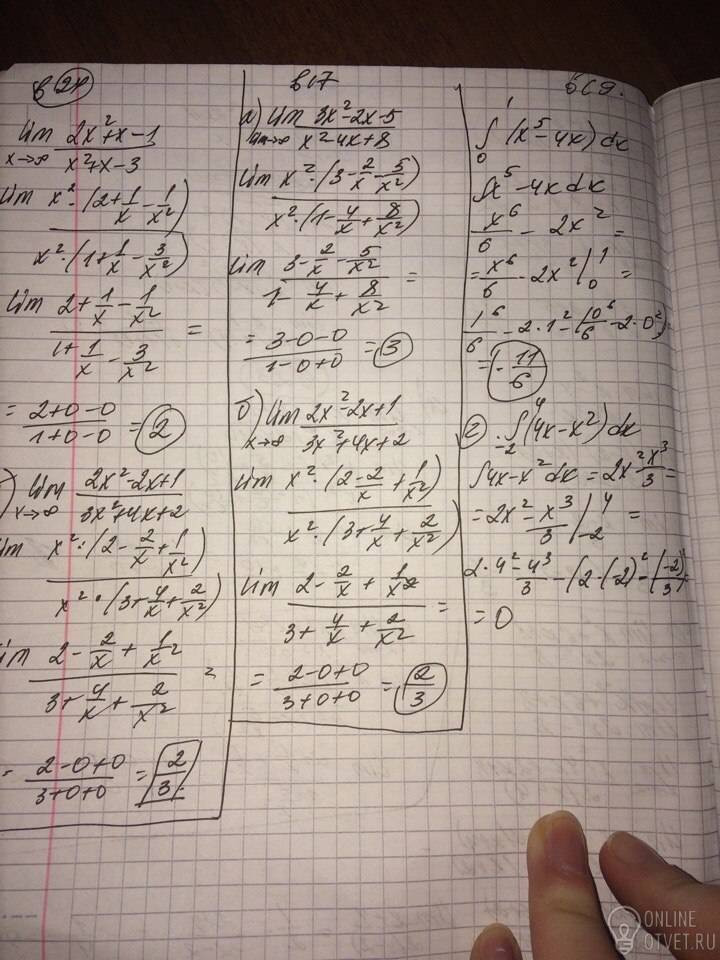 в 24
lim 2x²+x-1 / x→∞ x²+x-3
lim x²·(2+1/x-1/x²) / x²·(1+1/x-3/x²)
lim 2+1/x-1/x² / 1+1/x-3/x² =
= 2+0-0 / 1+0-0 = 2
) lim 2x²-2x+1 / x→∞ 3x²+4x+2
lim x²·(2-2/x+1/x²) / x²·(3+4/x+2/x²)
lim 2-2/x+1/x² / 3+4/x+2/x² =
= 2-0+0 / 3+0+0 = 2/3
в 17
а) lim 3x²-2x-5 / x→∞ x²-4x+8
lim x²·(3-2/x-5/x²) / x²·(1-4/x+8/x²)
lim 3-2/x-5/x² / 1-4/x+8/x² =
= 3-0-0 / 1-0+0 = 3
б) lim 2x²-2x+1 / x→∞ 3x²+4x+2
lim x²·(2-2/x+1/x²) / x²·(3+4/x+2/x²)
lim 2-2/x+1/x² / 3+4/x+2/x² =
= 2-0+0 / 3+0+0 = 2/3
∫₀¹ (x⁵-4x)dx
∫x⁵-4xdx
x⁶/6 - 2x²
= x⁶/6 - 2x² |₀¹ =
1⁶/6 - 2·1² - (0⁶/6 - 2·0²) =
= -11/6
2. ∫₋₂⁴ (4x-x²)dx
∫4x-x²dx = 2x² x³/3 =
= 2x² - x³/3 |₋₂⁴ =
2·4² - 4³/3 - (2·(-2)² - (-2)³/3)
= 0
ONLINE
OTVET.RU